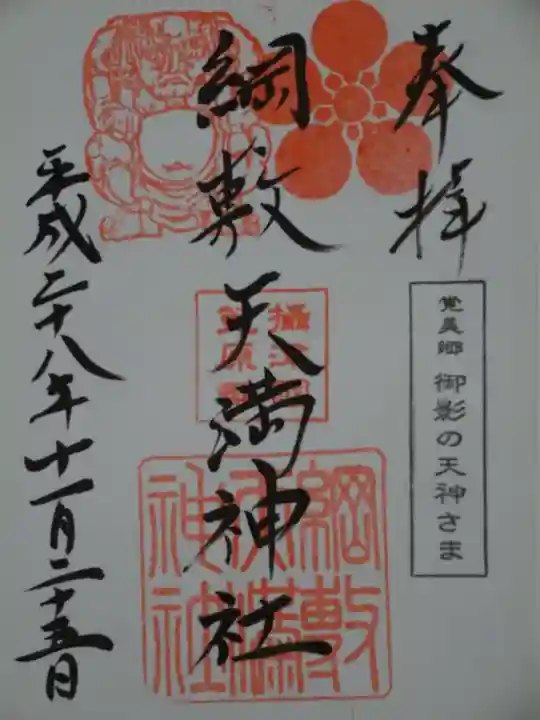 奉拝
覚美郷 御影の天神さま
綱敷天満神社
綱敷天満神社
平成二十八年十一月二十五日